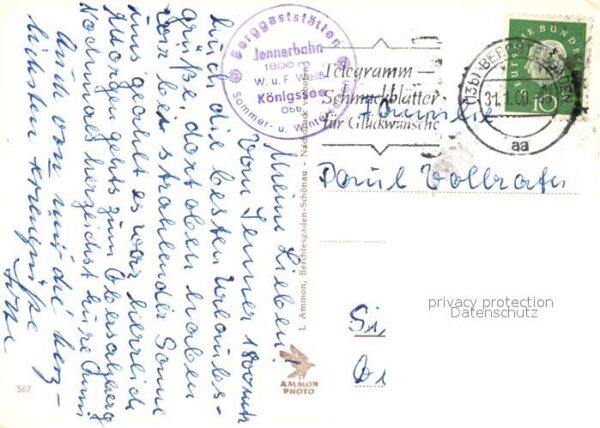 Berggaststätten
Jennerbahn
1800 m
W. u. F. Weiß
Königssee
Obb.
Sommer- u. Winter
Telegramm-
Schmuckblätter
für Glückwünsche
(13b) BERCHTESGADEN
31.1.60
aa
DEUTSCHE BUNDESPOST
10
Meine Lieben!
Vom Jenner 1800 mtr
Euch die besten Urlaubs-
grüße dort oben haben
wir bei strahlender Sonne
uns geaalt es war herrlich
Morgen gehts zum Obersalzberg
Nochmals herzlichst
und die herz-
lichsten
Familie
Paul Vollrath
Si
bi
L. Ammon, Berchtesgaden-Schönau - Nachdruck verboten
AMMON
PHOTO
567
privacy protection
Datenschutz